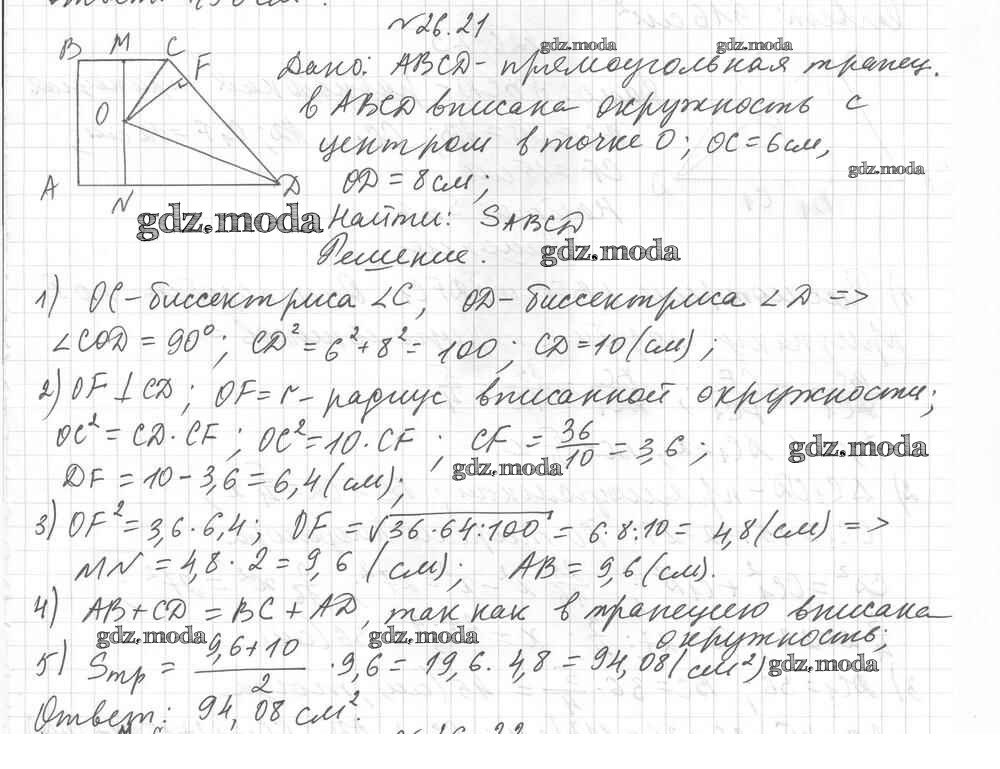 №26.21
B M C F
O
A N D
Дано: ABCD - прямоугольная трапец.
в ABCD вписана окружность с
центром в точке O; OC = 6 см,
OD = 8 см;
Найти: S ABCD
Решение.
1) OC - биссектриса ∠C, OD - биссектриса ∠D =>
∠COD = 90°; CD² = 6² + 8² = 100; CD = 10 (см);
2) OF ⊥ CD; OF = r - радиус вписанной окружности;
OC² = CD · CF; OC² = 10 · CF; CF = 36/10 = 3,6;
DF = 10 - 3,6 = 6,4 (см);
3) OF² = 3,6 · 6,4; OF = √36·64:100 = 6·8:10 = 4,8 (см) =>
MN = 4,8 · 2 = 9,6 (см); AB = 9,6 (см).
4) AB + CD = BC + AD, так как в трапецию вписана
окружность;
5) Sтр = 9,6+10/2 · 9,6 = 19,6 · 4,8 = 94,08 (см²)
Ответ: 94,08 см².
gdz.moda
gdz.moda
gdz.moda
gdz.moda
gdz.moda
gdz.moda
gdz.moda
gdz.moda
gdz.moda
gdz.moda